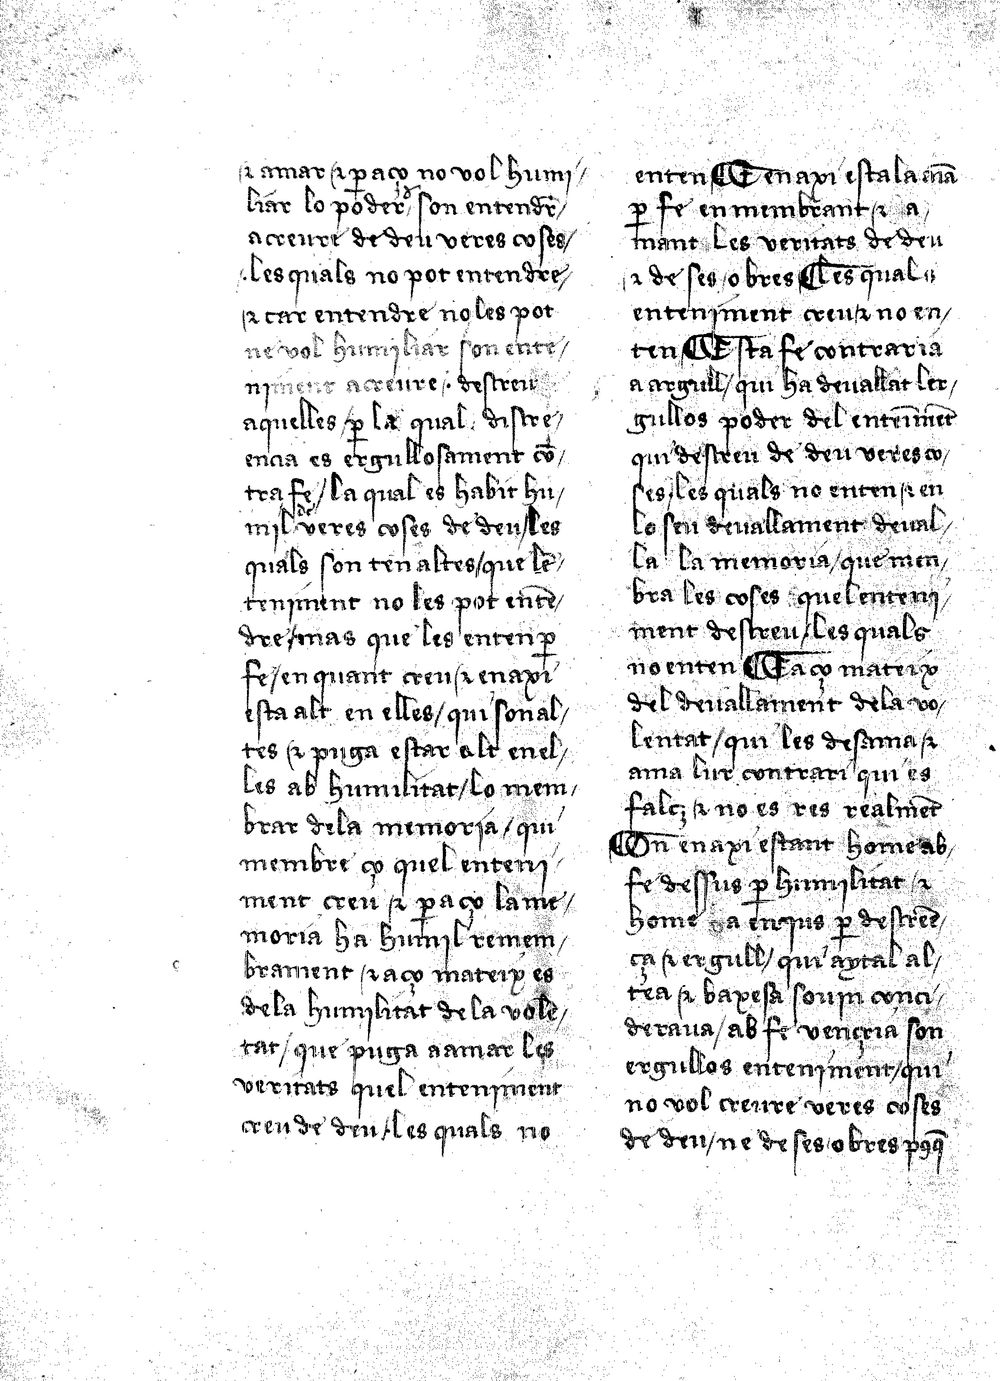 ⁊ amar / ⁊ p̱ aço no vol humi/
liar lo poder / son entendr̄/
a creure de deu veres coses/
les quals no pot entendre/
⁊ car entendre no les pot
ne vol humiliar son ente/
niment a creure / destreu
aquelles / p̱ la qual discre/
encia es ergullosament cō/
tra fe / la qual es habit hu/
mil de veres coses de deu / les
quals son ten altes / que lē/
teniment no les pot entē/
dre / mas que les enten p̱
fe / en quant creu / ⁊ en axi
esta alt en elles / qui son al/
tes ⁊ puga estar alt en el/
les ab humilitat / lo mem/
brar de la memoria / qui
membre ço quel enteni/
ment creu ⁊ p̱ aço la me/
moria ha humil remem/
brament / ⁊ aço mateix es
de la humilitat de la volē/
tat / que puga a amar les
veritats quel enteniment
creu de deu / les quals no
enten E en axi esta la aīa
p̱ fe en membrant ⁊ a/
mant les veritats de deu
⁊ de ses obres Les quals
enteniment creu ⁊ no en/
ten Esta fe contraria
a argull / qui ha devallat ler/
gullos poder del entenimēt
qui destreu de deu veres co/
ses / les quals no enten / ⁊ en
lo seu devallament deval/
la la memoria / que mem/
bra les coses quel enteni/
ment destreu / les quals
no enten E aço mateix
del devallament de la vo/
lentat / qui les desama ⁊
ama lur contrari qui es
falç ⁊ no es res realmēt
On en axi estant home ab/
fe dessus p̱ humilitat ⁊
home a enjus p̱ destreē/
ça ⁊ ergull / qui aytal al/
tea ⁊ baxesa sovin conci/
derava / ab fe vençria son
ergullos enteniment / qui
no vol creure veres coses
de deu / ne de ses obres pꝯ q̄